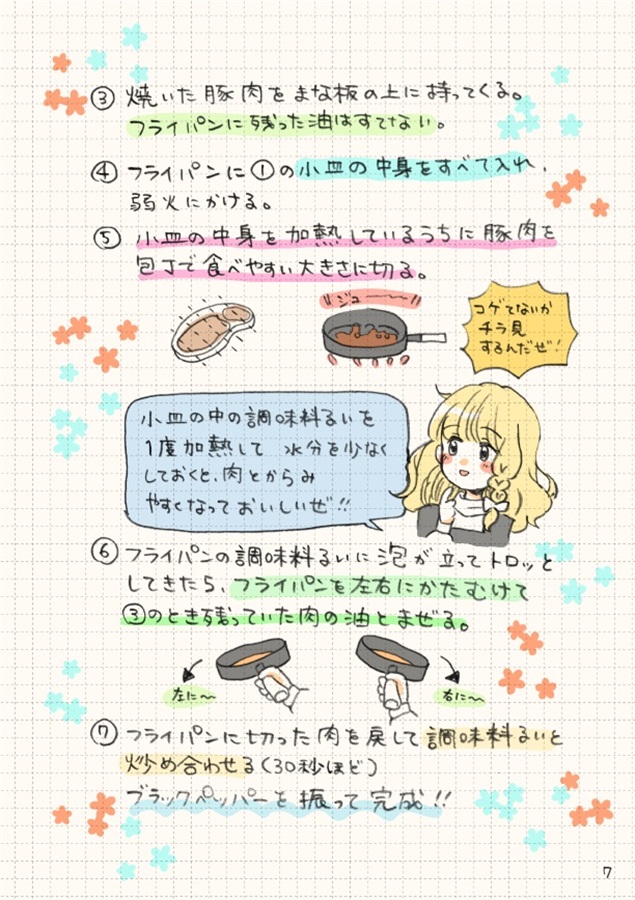 ③ 焼いた豚肉をまな板の上に持ってくる。
フライパンに残った油はすてない。
④ フライパンに①の小皿の中身をすべて入れ、
弱火にかける。
⑤ 小皿の中身を加熱しているうちに豚肉を
包丁で食べやすい大きさに切る。
ジューーー
コゲてないか
チラ見
するんだぜ!
小皿の中の調味料るいを
1度加熱して 水分を少なく
しておくと、肉とからみ
やすくなっておいしいぜ!!
⑥ フライパンの調味料るいに泡が立ってトロッと
してきたら、フライパンを左右にかたむけて
③のとき残っていた肉の油とまぜる。
左に〜
右に〜
⑦ フライパンに切った肉を戻して調味料るいと
炒め合わせる(30秒ほど)
ブラックペッパーを振って完成!!
7